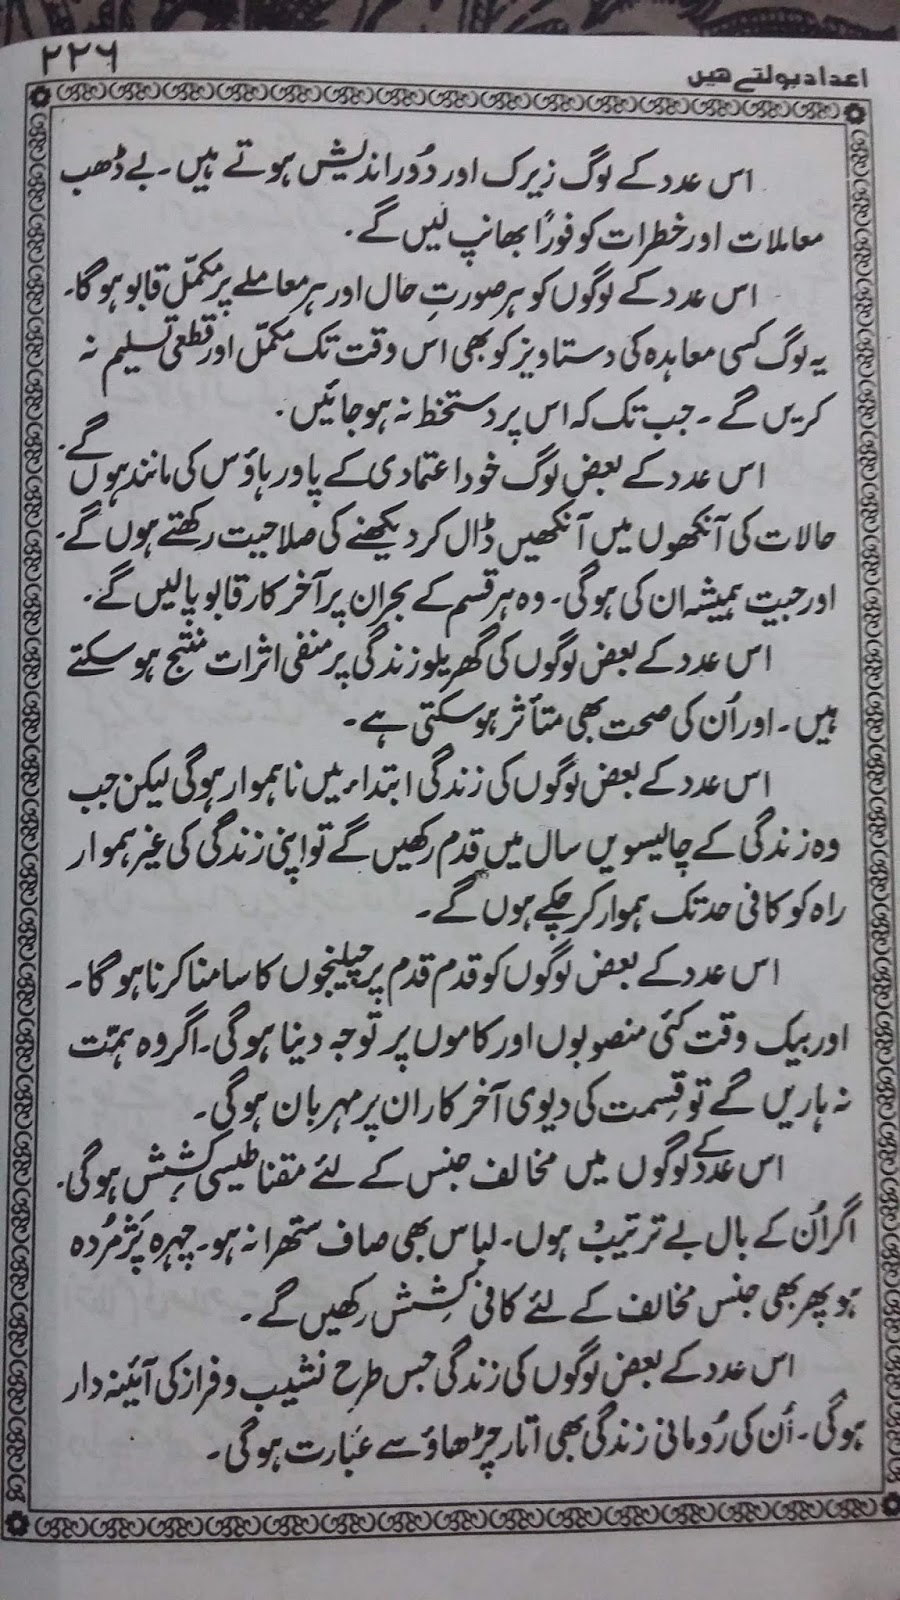 اعداد بولتے ہیں
۲۲۶
اس عدد کے لوگ زیرک اور دُور اندیش ہوتے ہیں۔ بے ڈھب
معاملات اور خطرات کو فوراً بھانپ لیں گے۔
اس عدد کے لوگوں کو ہر صورتِ حال اور ہر معاملے پر مکمّل قابو ہو گا۔
یہ لوگ کسی معاہدہ کی دستاویز کو بھی اس وقت تک مکمّل اور قطعی تسلیم نہ
کریں گے۔ جب تک کہ اس پر دستخط نہ ہو جائیں۔
اس عدد کے بعض لوگ خود اعتمادی کے پاور ہاؤس کی مانند ہوں گے۔
حالات کی آنکھوں میں آنکھیں ڈال کر دیکھنے کی صلاحیت رکھتے ہوں گے۔
اور جیت ہمیشہ ان کی ہوگی۔ وہ ہر قسم کے بحران پر آخر کار قابو پا لیں گے۔
اس عدد کے بعض لوگوں کی گھریلو زندگی پر منفی اثرات منتج ہو سکتے
ہیں۔ اور اُن کی صحت بھی متأثر ہو سکتی ہے۔
اس عدد کے بعض لوگوں کی زندگی ابتداء میں ناہموار ہوگی لیکن جب
وہ زندگی کے چالیسویں سال میں قدم رکھیں گے تو اپنی زندگی کی غیر ہموار
راہ کو کافی حد تک ہموار کر چکے ہوں گے۔
اس عدد کے بعض لوگوں کو قدم قدم پر چیلنجوں کا سامنا کرنا ہو گا۔
اور بیک وقت کئی منصوبوں اور کاموں پر توجہ دینا ہوگی۔ اگر وہ ہمّت
نہ ہاریں گے تو قِسمت کی دیوی آخر کار ان پر مہربان ہوگی۔
اس عدد کے لوگوں میں مخالف جنس کے لئے مقناطیسی کشِش ہوگی۔
اگر اُن کے بال بے ترتیب ہوں۔ لباس بھی صاف ستھرا نہ ہو۔ چہرہ پَژمُردہ
ہو پھر بھی جنس مخالف کے لئے کافی کشِش رکھیں گے۔
اس عدد کے بعض لوگوں کی زندگی جس طرح نشیب و فراز کی آئینہ دار
ہوگی۔ اُن کی رُومانی زندگی بھی اتار چڑھاؤ سے عبارت ہوگی۔